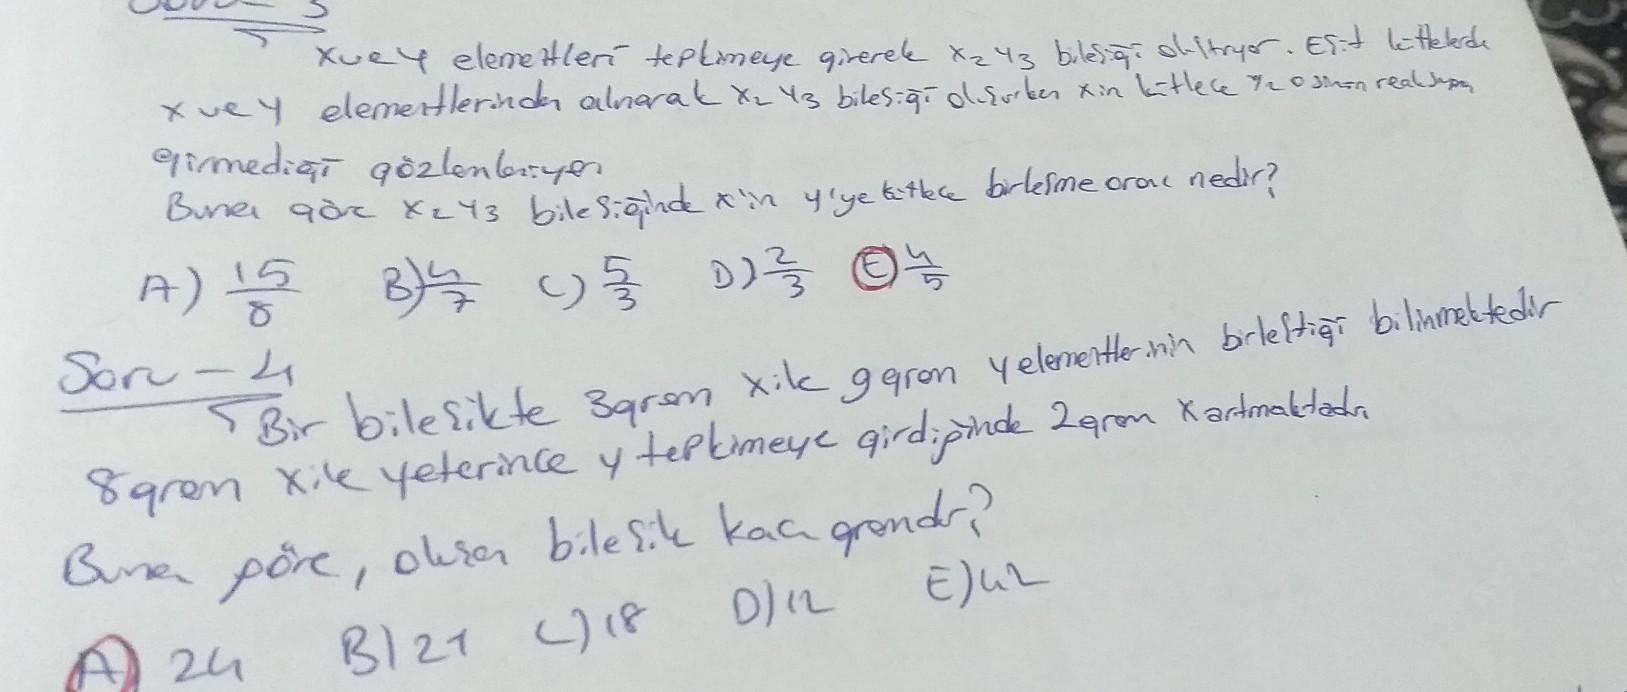 x ve y elementleri tepkimeye girerek x2y3 bileşiği oluşturuyor. Eşit kütlelerde
x ve y elementlerinden alınarak x2y3 bileşiği oluşurken x in kütlece %20 sinin reaksiyona
girmediği gözlenleniyor
Buna göre x2y3 bileşiğinde x'in y'ye kütlece birleşme oranı nedir?
A) 15/8 B) 4/7 C) 5/3 D) 2/3 E) 4/5
Soru - 4
Bir bileşikte 3 gram x ile 9 gram y elementlerinin birleştiği bilinmektedir
8 gram x ile yeterince y tepkimeye girdiğinde 2 gram x artmaktadır
Buna göre, oluşan bileşik kaç gramdır?
A) 24 B) 21 C) 18 D) 12 E) 42